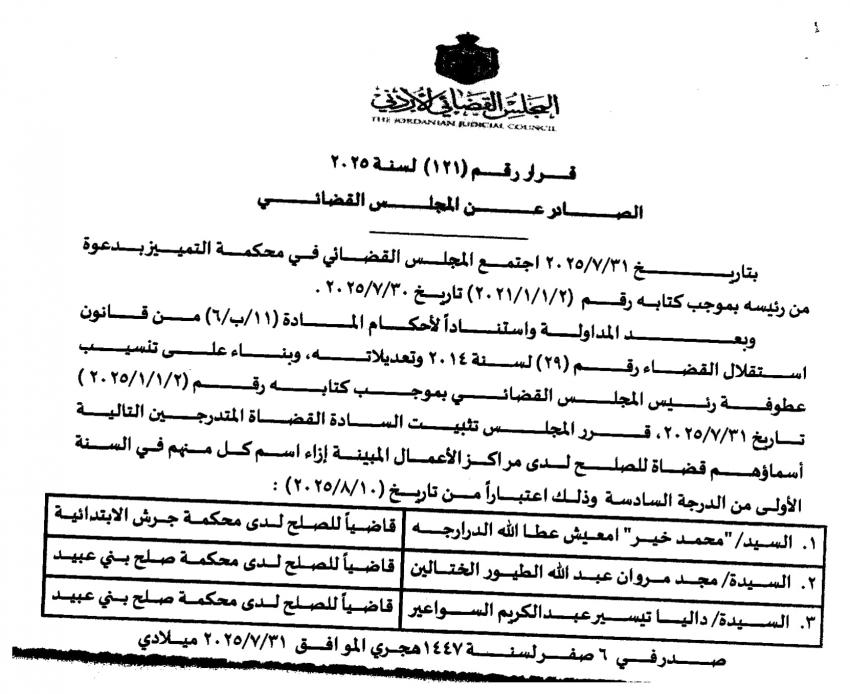 المجلس القضائي الأردني
THE JORDANIAN JUDICIAL COUNCIL
قرار رقم (١٢١) لسنة ٢٠٢٥
الصادر عن المجلس القضائي
بتاريخ ٢٠٢٥/٧/٣١ اجتمع المجلس القضائي في محكمة التمييز بدعوة
من رئيسه بموجب كتابه رقم (٢٠٢١/١/١/٢) تاريخ ٢٠٢٥/٧/٣٠ .
وبعد المداولة واستناداً لأحكام المادة (١١/ب/٦) من قانون
استقلال القضاء رقم (٢٩) لسنة ٢٠١٤ وتعديلاته، وبناء على تنسيب
عطوفة رئيس المجلس القضائي بموجب كتابه رقم (٢٠٢٥/١/١/٢ )
تاريخ ٢٠٢٥/٧/٣١، قرر المجلس تثبيت السادة القضاة المتدرجين التالية
أسماؤهم قضاة للصلح لدى مراكز الأعمال المبينة إزاء اسم كل منهم في السنة
الأولى من الدرجة السادسة وذلك اعتباراً من تاريخ (٢٠٢٥/٨/١٠) :
١. السيد/ "محمد خير" امعيش عطا الله الدرارجه قاضياً للصلح لدى محكمة جرش الابتدائية
٢. السيدة/ مجد مروان عبد الله الطيور الختالين قاضياً للصلح لدى محكمة صلح بني عبيد
٣. السيدة/ داليا تيسير عبدالكريم السواعير قاضياً للصلح لدى محكمة صلح بني عبيد
صدر في ٦ صفر لسنة ١٤٤٧ هجري الموافق ٢٠٢٥/٧/٣١ ميلادي